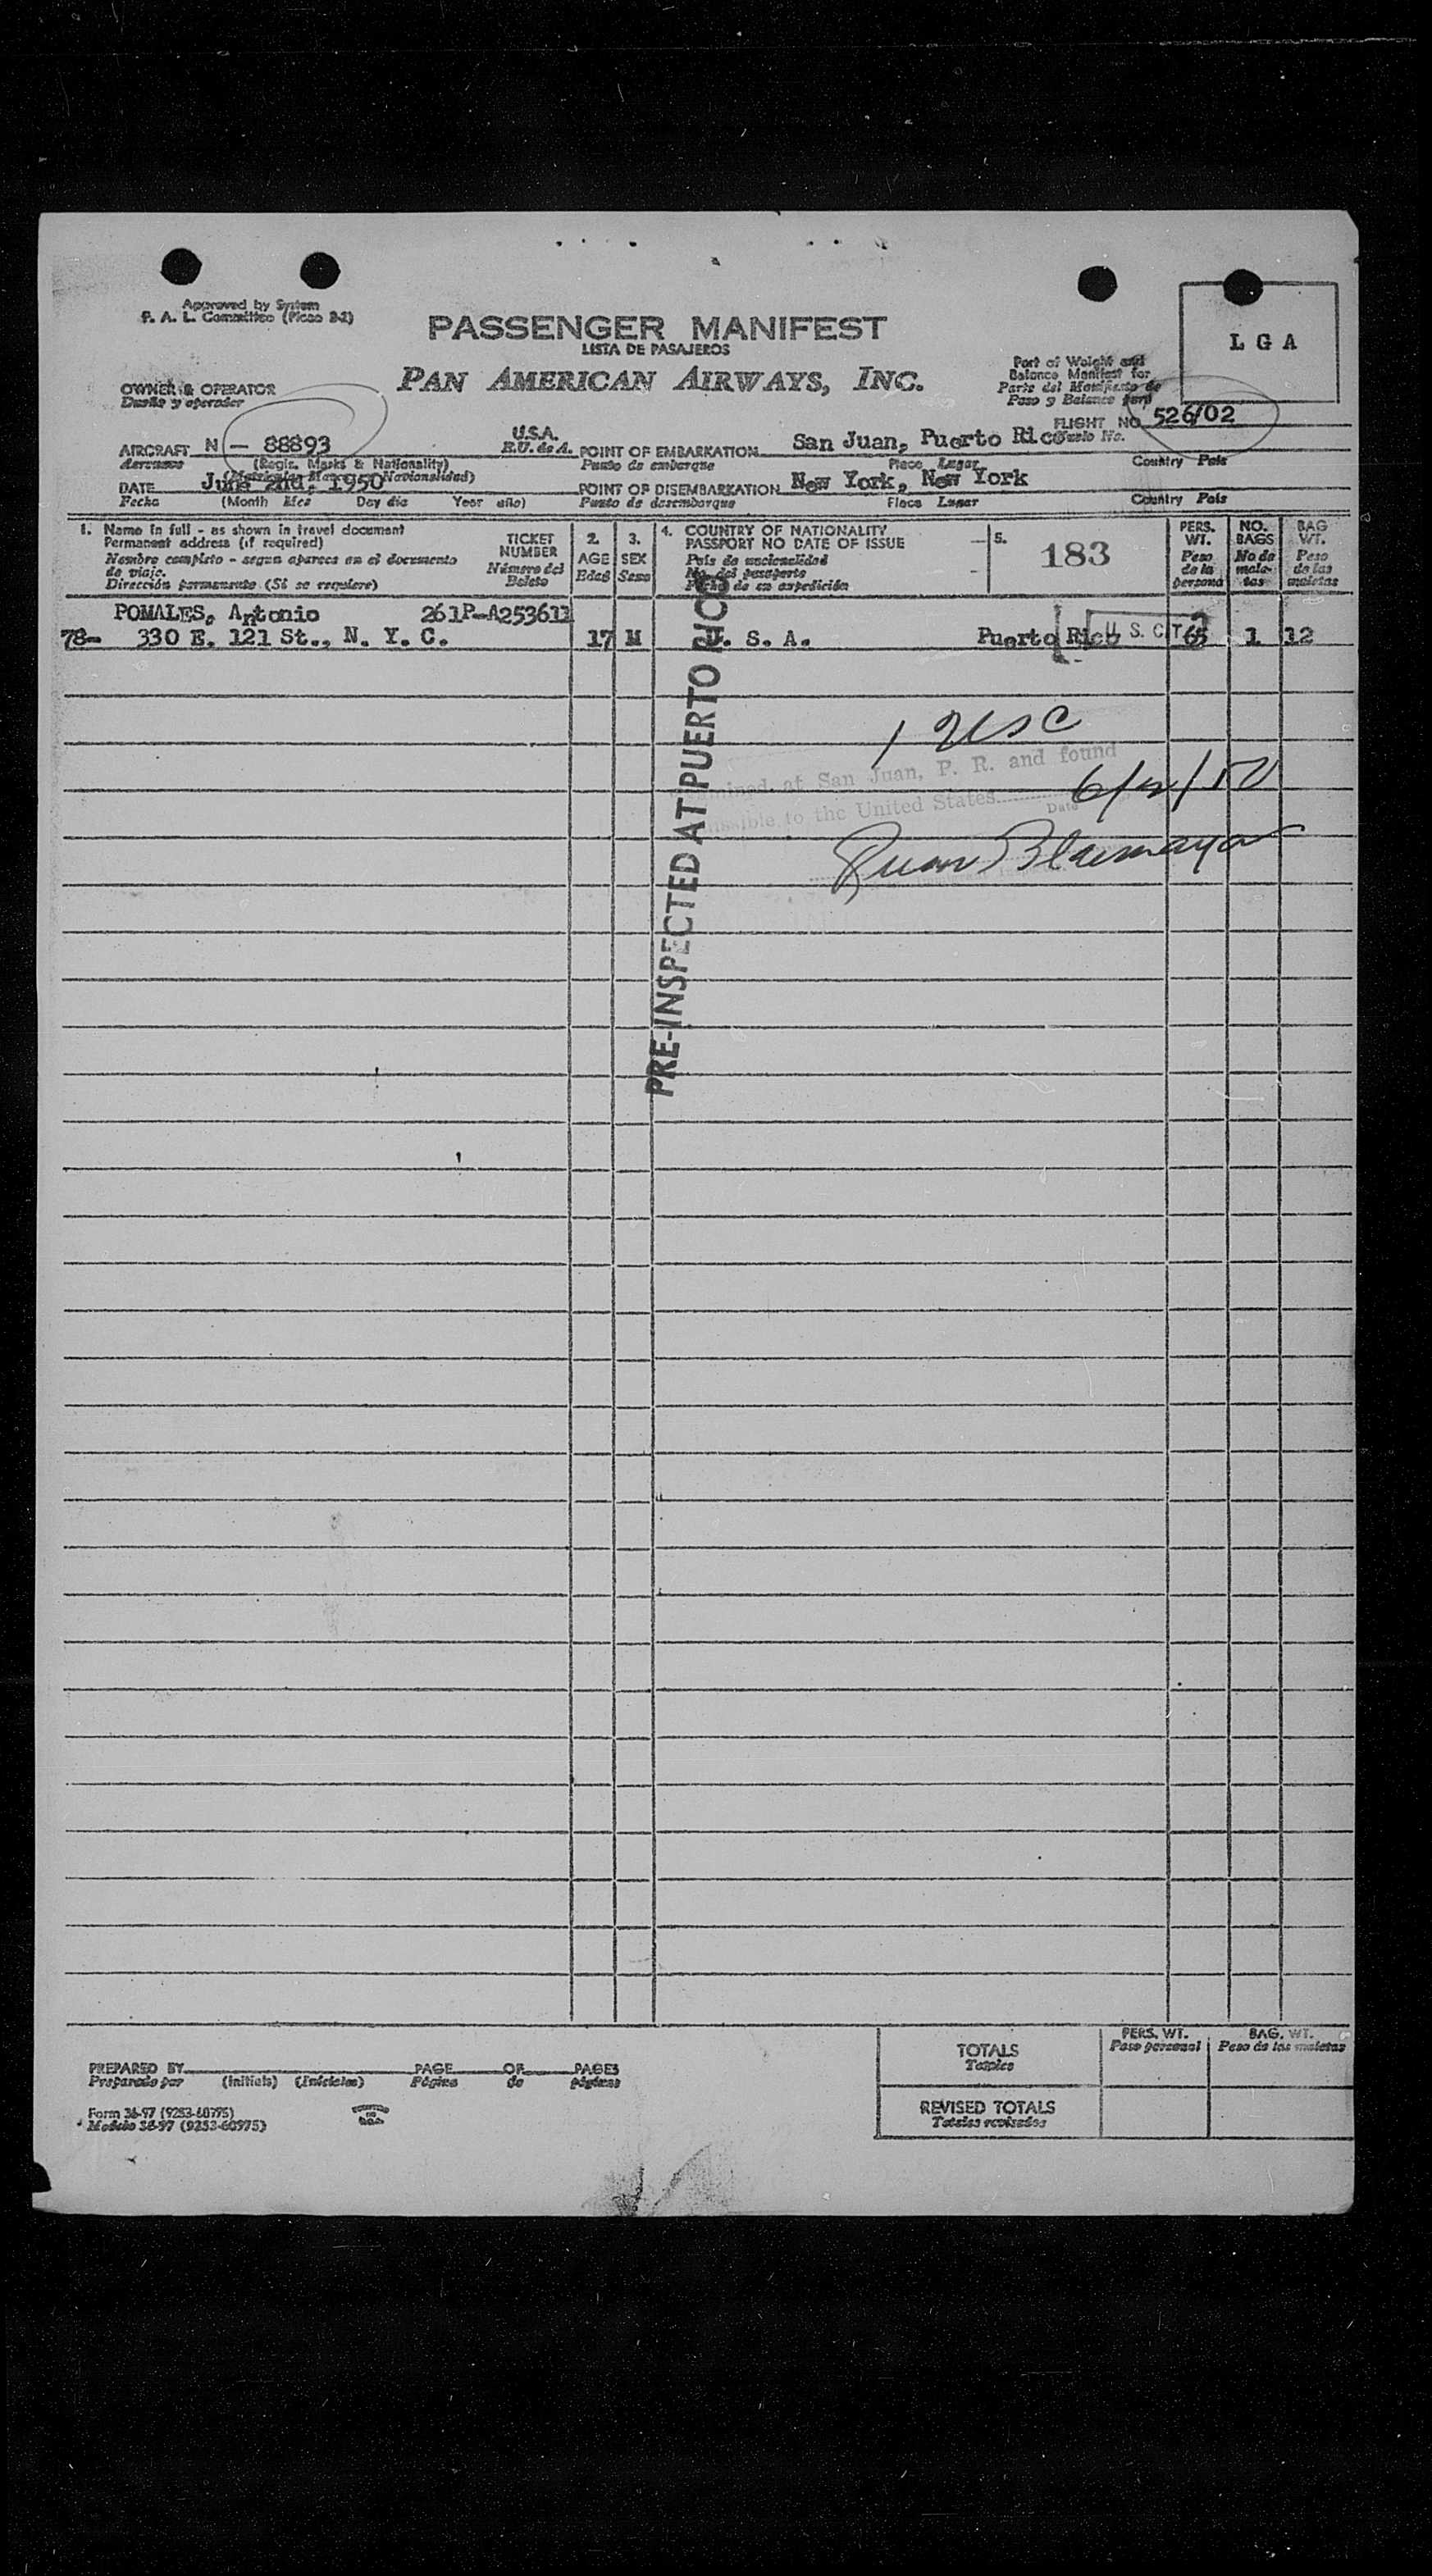 Approved by System
P. A. L. Committee (Picao 3-2)
PASSENGER MANIFEST
LISTA DE PASAJEROS
PAN AMERICAN AIRWAYS, INC.
L G A
Part of Weight and
Balance Manifest for
Parte del Manifiesto de
Peso y Balance para
OWNER & OPERATOR
Dueño y operador
FLIGHT NO. 526/02
Vuelo No.
AIRCRAFT N - 88893 U.S.A.
Aeronave (Regis. Marks & Nationality) E.U. de A.
POINT OF EMBARKATION San Juan, Puerto Rico
Punto de embarque Place Lugar Country País
DATE June 2nd, 1950
Fecha (Month Mes Day día Year año)
POINT OF DISEMBARKATION New York, New York
Punto de desembarque Place Lugar Country País
1. Name in full - as shown in travel document
Permanent address (if required)
Nombre completo - segun aparece en el documento
de viaje.
Dirección permanente (Si se requiere)
TICKET
NUMBER
Número del
Boleto
2.
AGE
Edad
3.
SEX
Sexo
4. COUNTRY OF NATIONALITY
PASSPORT NO DATE OF ISSUE
País de nacionalidad
No. del pasaporte
Fecha de su expedición
5. 183
PERS.
WT.
Peso
de la
persona
NO.
BAGS
No de
male-
tas
BAG
WT.
Peso
de las
maletas
POMALES, Antonio 261P-A253611
78- 330 E. 121 St., N. Y. C. 17 M U. S. A. Puerto Rico U. S. CIT 65 1 12
PRE-INSPECTED AT PUERTO RICO
1 USC
at San Juan, P. R. and found
to the United States
Date
PREPARED BY PAGE OF PAGES
Preparado por (Initials) (Iniciales) Página de páginas
Form 36-97 (9253-60975)
Modelo 36-97 (9253-60975)
PERS. WT.
Peso personal
BAG. WT.
Peso de las maletas
TOTALS
Totales
REVISED TOTALS
Totales revisados